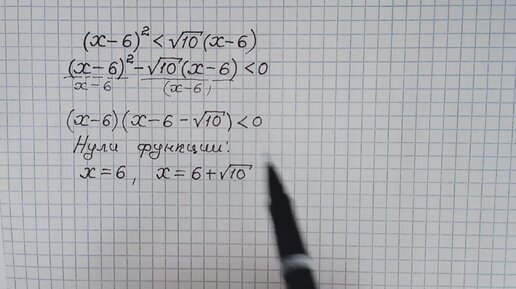 (x-6)² < √10 (x-6)
(x-6)² - √10 (x-6) < 0
x-6 (x-6)
(x-6)(x-6-√10) < 0
Нули функции:
x=6, x=6+√10